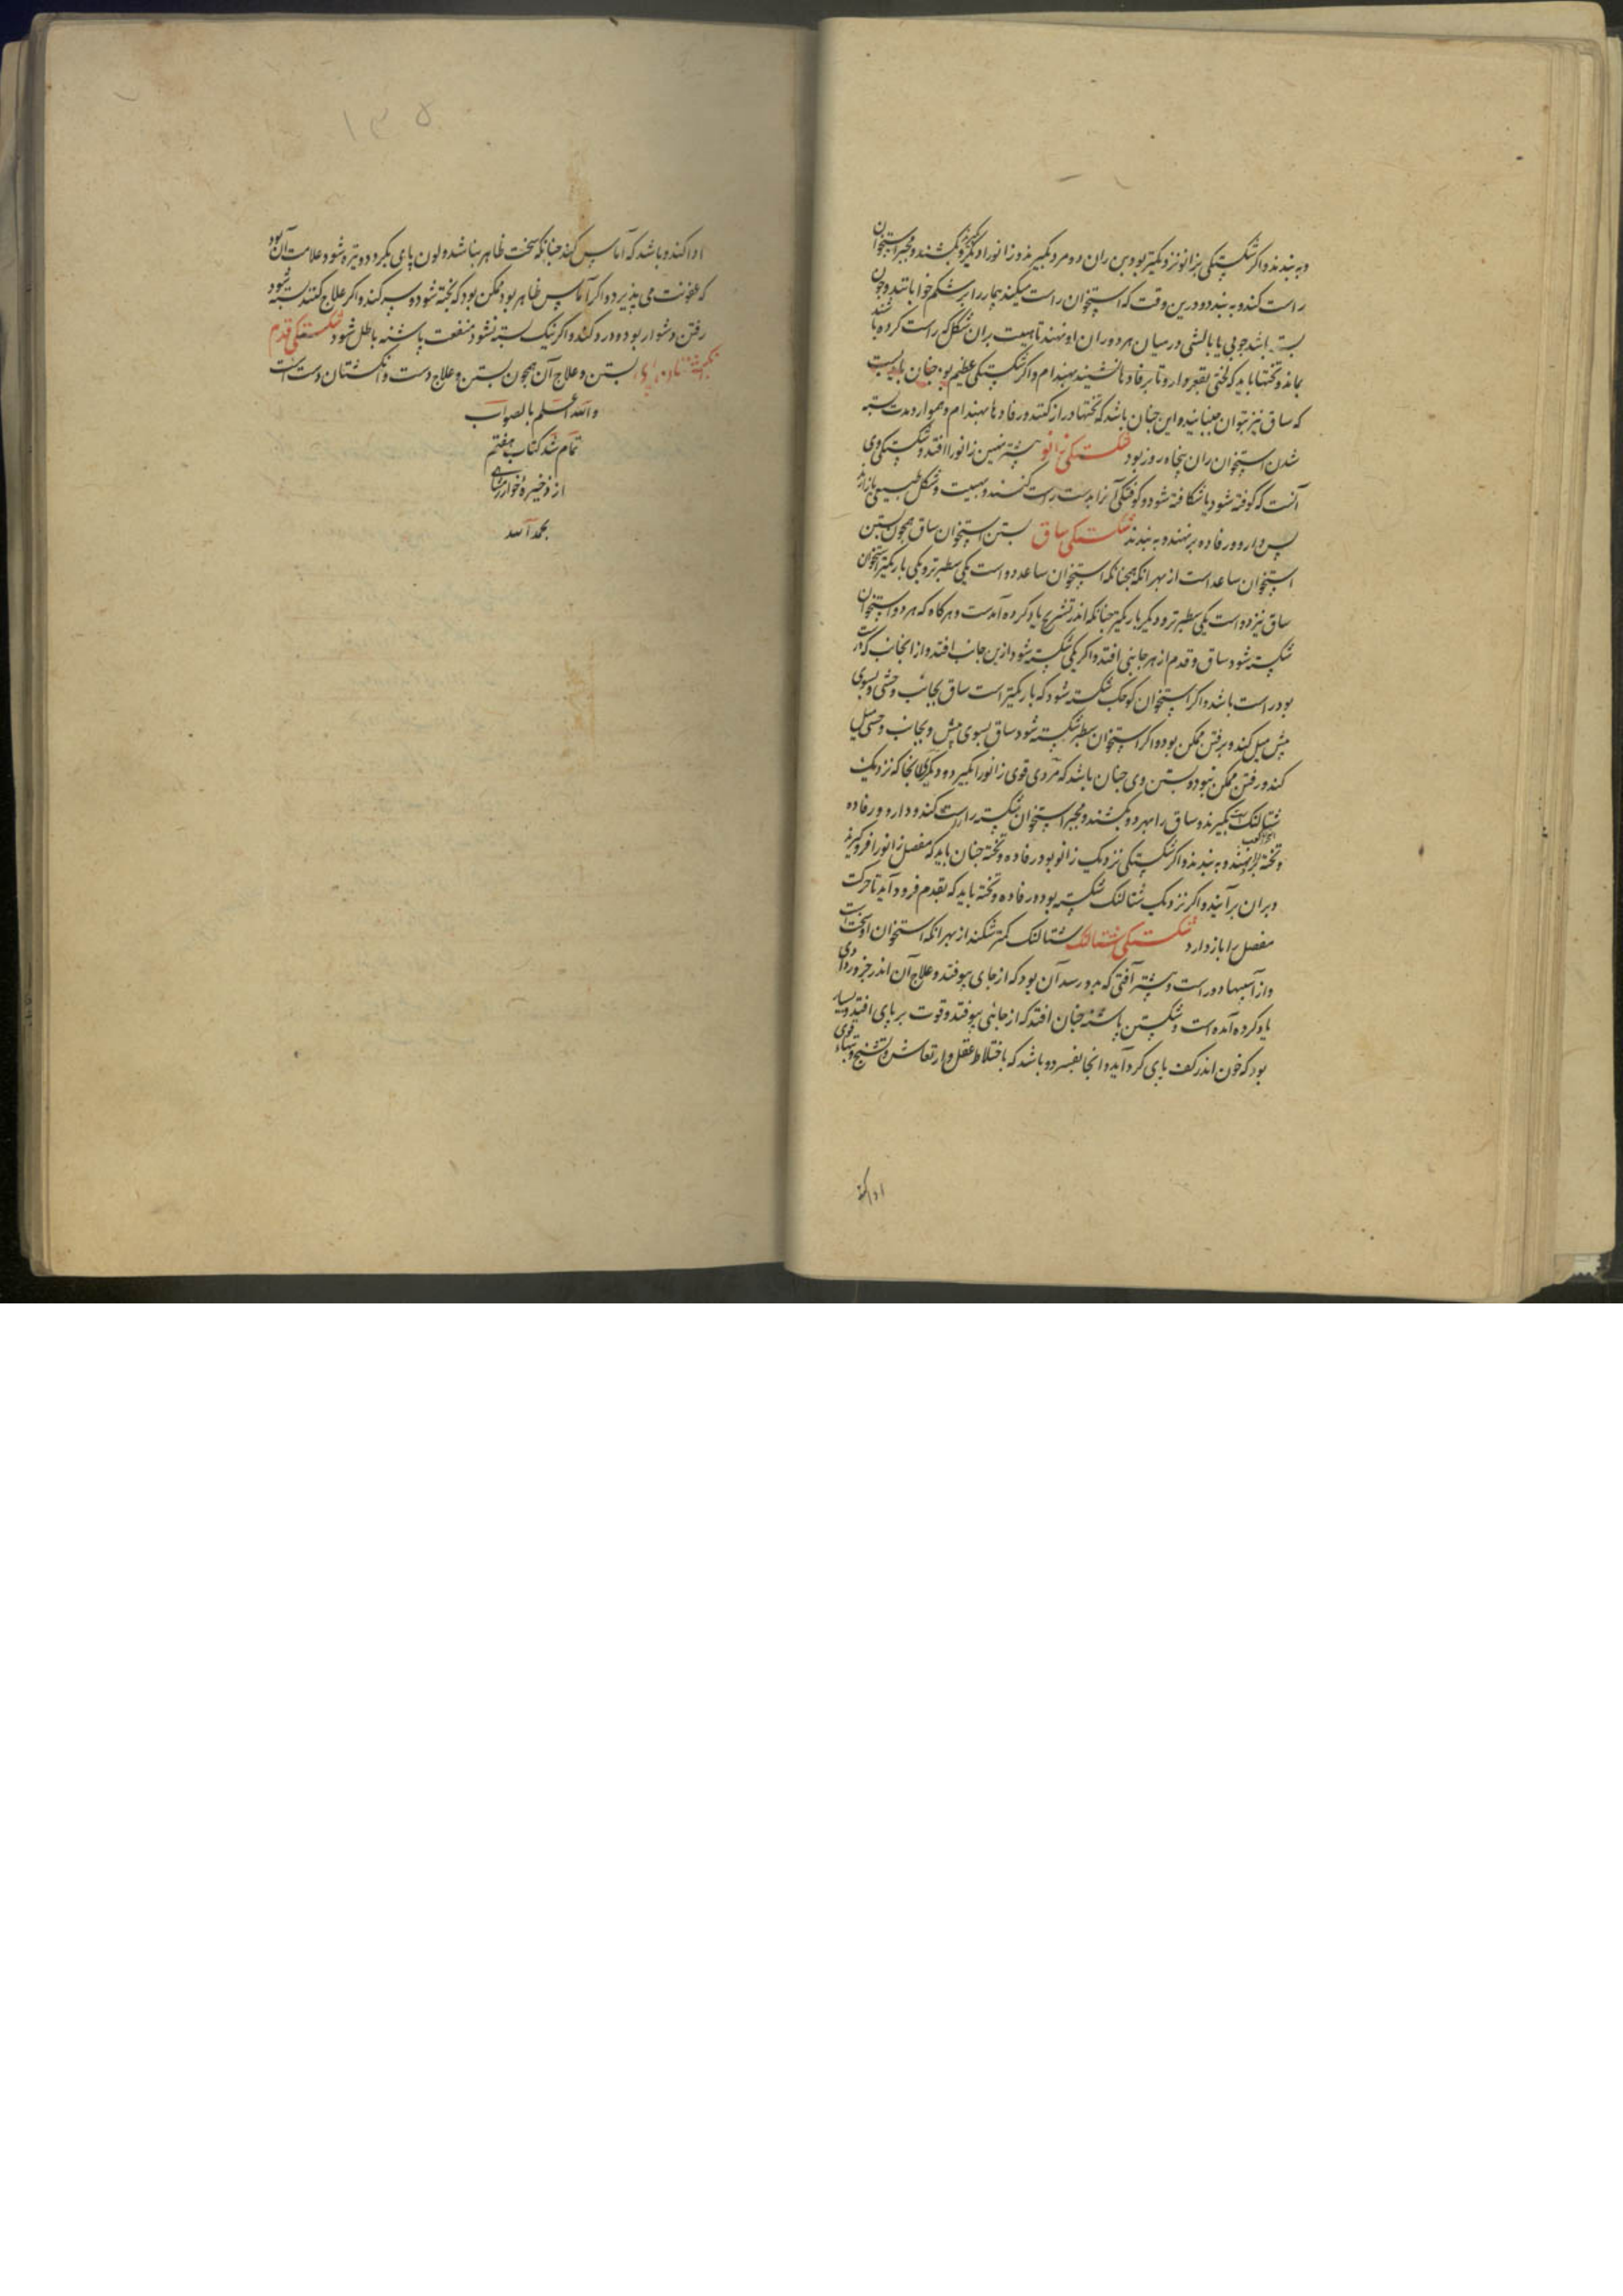 و به بندند و اکر شکستکی بزانو نزدیکتر بود بن ران دو مرد بکیرند و زانو را دیکری و بکشند و مجبر استخوان
راست کند و به بندد و درین وقت که استخوان راست میکنند بیمار را بر شکم خوابانند و چون
بسته باشد چوبی یا بالشی در میان هر دو ران او نهند تا هیبت بران شکل که راست کرده باشند
بماند و تختها باید که لختی بقعر هموار و تا بر فادها نشیند بهندام و اکر شکستکی عظیم بود چنان باید بست
که ساق نیز نتوان جنبانید و این چنان باشد که تختها دراز کنند و رفادها بهندام و هموار و مدت بسته
شدن استخوان ران پنجاه روز بود شکستکی زانو بیشترین زانو را افتد و شکستکی وی
آنست که کوفته شود یا شکافته شود و کوفتکی آنرا بدست راست کنند و بهیبت و شکل طبیعی باز آرند
پس دارو و رفاده بر نهند و به بندند شکستکی ساق بستن استخوان ساق همچون بستن
استخوان ساعد است از بهر انکه همچنانکه استخوان ساعد دو است یکی سطبرتر و یکی باریکتر استخوان
ساق نیز دو است یکی سطبرتر و دیکر باریکتر چنانکه اندر تشریح یاد کرده آمدست و هرکاه که هر دو استخوان
شکسته شود ساق و قدم از هر جانبی افتد و اکر یکی شکسته شود ازین جانب افتد و از انجانب که درست
بود راست باشد و اکر استخوان کوچک شکسته شود که باریکتر است ساق بجانب وحشی و بسوی
پیش میل کند و برفتن ممکن بود و اکر استخوان سطبر شکسته شود ساق بسوی پیش و بجانب وحشی میل
کند و رفتن ممکن نبود و بستن وی چنان باشد که مردی قوی زانو را بکیرد و دیکری انجا که نزدیک
شتالنک است بکیرند و ساق را بهر دو بکشند و مجبر استخوان شکسته راست کند و دارو و رفاده
و تخته برنهند و به بندند و اکر شکستکی نزدیک زانو بود رفاده و تخته چنان باید که مفصل زانو را فروکیرد
و بران برآیند و اکر نزدیک شتالنک شکسته بود و رفاده و تخته باید که بقدم فرود آید تا حرکت
مفصل را باز دارد شکستکی شتالنک شتالنک کمتر شکند از بهر انکه استخوان او سخت است
و از آسیبها دور است و بیشتر آفتی که بدو رسد آن بود که از جای بیوفتد و علاج آن اندر جزو ردادی
یاد کرده آمده است و شکستن پاشنه چنان افتد که از جائی بیوفتد و قوت بر پای افتد و بسیار
بود که خون اندر کف پای کرد آید و انجا بفسرد و باشد که باختلاط عقل و ارتعاش و تشنج و تبهاء قوی
ادا کند
۱۳۵
ادا کند و باشد که آماس کند چنانکه سخت ظاهر نباشد و لون پای بکردد و تیره شود و علامت آن بود
که عفونت می پذیرد و اکر آماس ظاهر بود ممکن بود که پخته شود و سر کند و اکر علاج کنند بسته شود
رفتن دشوار بود و درد کند و اکر نیک بسته نشود منفعت پاشنه باطل شود شکستکی قدم
و انکشتان پای بستن و علاج آن همچون بستن و علاج دست و انکشتان دست است
والله اعلم بالصواب
تمام شد کتاب هفتم
از ذخیره خوارزمشاهی
بحمد الله